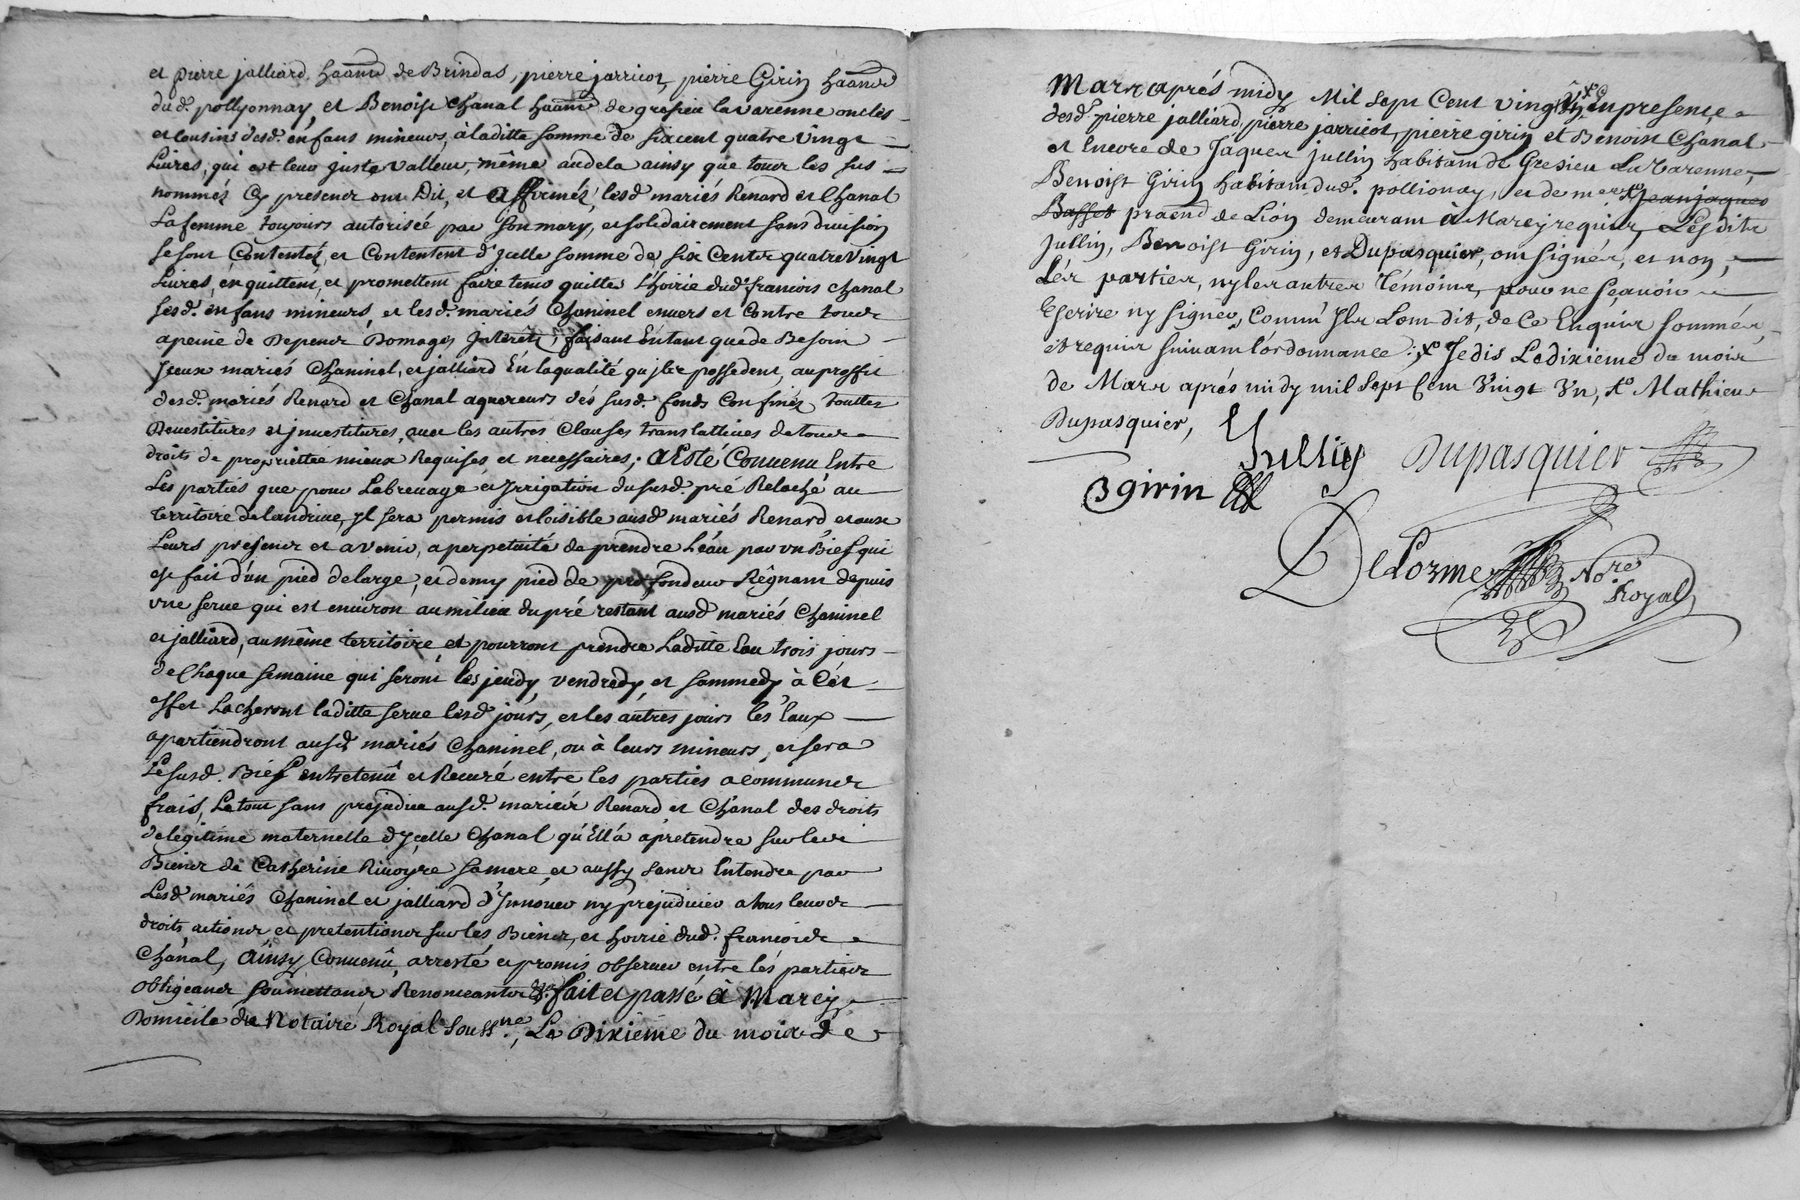 et pierre jalliard habitant de Brindas, pierre jarricot, pierre Girin habitant
dud. pollyonnay, et Benoist Chanal habitant de gresieu lavarenne oncles
et cousins desd. enfans mineurs, à laditte somme de sixcent quatre vingt
Livres, qui est leur juste valleur, même audela ainsy que tour les sus
nommés Cy presener ont Dit, et affirmés, lesd mariés Renard et Chanal
La femme toujours autorisée par son mary, et solidairement sans division
se sont Contentés, et Contentent d'jcelle somme de six Center quatrevingt
Livres, en quittent, et promettent faire tenis quitte L'hoirie dud francois chanal
sesd. enfans mineurs, et lesd. mariés Chaninel envers et Contre touer
apeine de Depener Domages jnterets, faisant Entant que de Besoin
jceux mariés Chaninel, et jalliard En laqualité qu'jler possedent, au proffit
desd. mariés Renard et Chanal aquereurs dés susd. fonds Confinés, touttes
Devestitures et jnvestitures, avec les autres Clauses translattives de touer
droits de propriettée mieux Requises, et necessaires; aEsté Convenu Entre
Les parties que pour Labreuvage et jrrigation du susd. pré Relaché au
territoire de landrive, jl sera permis et loisible ausd mariés Renard et aux
Leurs presener et avenir, a perpetuité de prendre L'eau par un Bief qui
est fait d'un pied de large, et demy pied de profondeur Régnant depuis
une serve qui est environ au milieu du pré restant ausd mariés Chaninel
et jalliard, au même territoire et pourront prendre Laditte Eau trois jours
de Chaque semaine qui seront les jeudy, vendredy, et sammedy à Cét
effet Lacheront laditte serve lesd jours, et les autres jours lés Eaux
apartiendront ausd mariés Chaninel, ou à leurs mineurs, et sera
Lesusd. Bief entretenû et Recuré entre les parties a communer
frais, Le tout sans prejudice ausd. mariér Renard et Chanal des droits
de legitime maternelle d'jcelle Chanal qu'Ell'a apretendre sur lesd
Biener de Catherine Rivoyre samere, et aussy saner Entendre par
Lesd mariés Chaninel et jalliard d'jnnover ny prejudicier a tous leurer
droits, actioner et pretentioner sur lés Biener, et hoirie dud. francoider
Chanal, ainsy Convenû, arresté et promis observer entre lés partier
obligeaner soumettaner Renonceanter &a. fait et passé à Marcy
Domicile du Notaire Royal Souss.né, Le Dixiême du moir de
Marr aprés midy Mil sept Cent vingt un, en presence
desd. pierre jalliard, pierre jarricot, pierre girin et Benoist Chanal
et Encore de Jaquer jullin habitant de Gresieu La Varenne,
Benoist Girin habitant dud. pollionay, et de mer Xo Jeanjaques
Basset pratnd de Lion demeurant à Marcy requis, Lesdits
Jullin, Benoist Girin, et Dupasquier, ont signés, et non,
Lér partier, ny ler autrer Témoinr, pour ne sçavoir
Escrire ny signer, Comm'jlr Lont dit, de Ce Enquir sommés
et requir suivant l'ordonnance; Xo Jedis Ledixieme du mois
de Marr aprés midy mil sept Cent vingt Vn, Xo Mathieu
Dupasquier,
Jullin Dupasquier
Bgirin
DeLorme Nore.
Royal